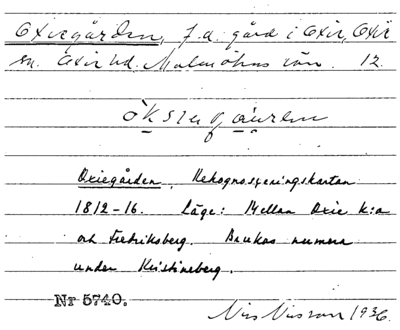 Oxiegården, f.d. gård i Oxie, Oxie
sn. Oxie hd. Malmöhus län. 12.
Oxiegården, Rekognosceringskartan
1812-16. Läge: Mellan Oxie k:a
och Fredriksberg. Brukas numera
under Kristineberg.
Nr 5740.
Nils Nilsson 1936.